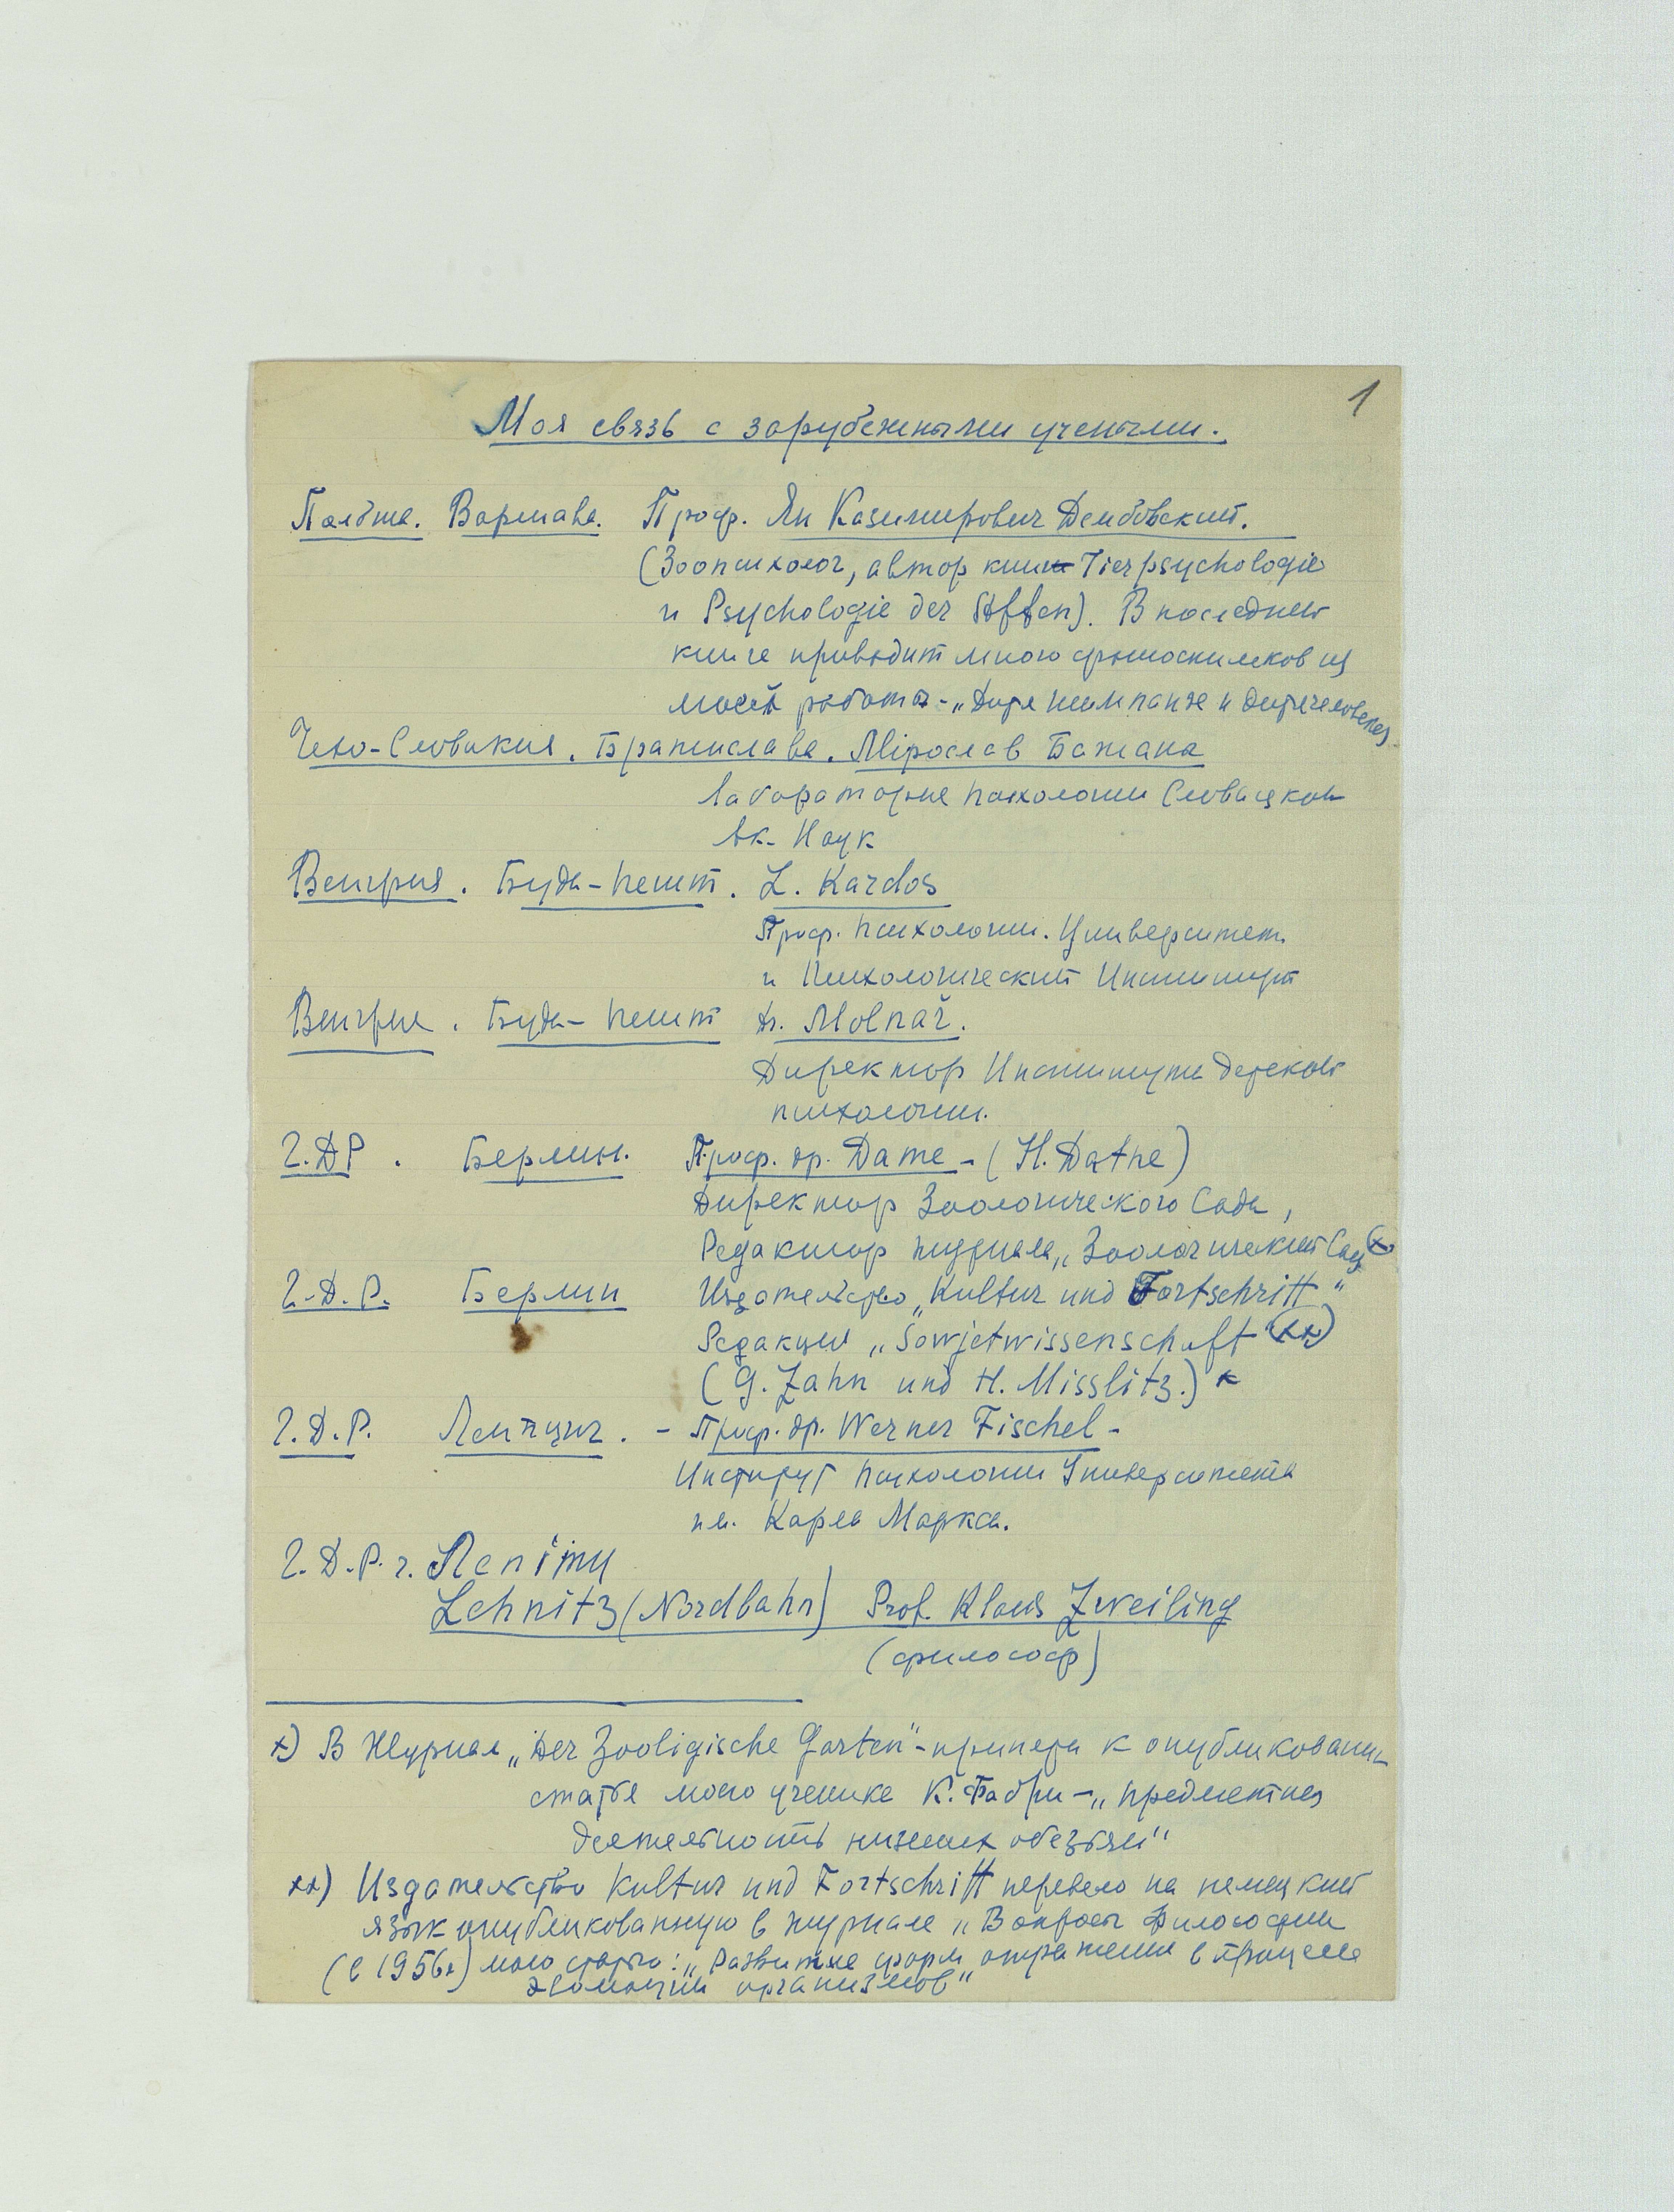 1
Моя связь с зарубежными учеными.
Польша. Варшава. Проф. Ян Казимирович Дембовский.
(Зоопсихолог, автор книг Tierpsychologie
и Psychologie der Affen). В последней
книге приводит много фотоснимков из
моей работы - „Дитя шимпанзе и дитя человека
Чехо-Словакия. Братислава. Мірослав Бажана
Лаборатория психологии Словацкой
Ак. Наук
Венгрия. Буда-Пешт. L. Kardos
Проф. психологии. Университет
и Психологический Институт
Венгрия. Буда-Пешт Др. Molnař.
Директор Института детской
психологии.
Г.ДР. Берлин. Проф. др. Дате - (H. Dathe)
Директор Зоологического Сада,
Редактор журнала „Зоологический Сад x)
Г.Д.Р. Берлин Издательство „Kultur und Fortschritt"
Редакция „Sowjetwissenschaft" xx)
(G. Zahn und H. Misslitz.) x
Г.Д.Р. Лейпциг. - Проф. др. Werner Fischel -
Институт психологии Университета
им. Карла Маркса.
Г.Д.Р. г. Ленітц
Lehnitz (Nordbahn) Prof. Klaus Zweiling
(философ)
x) В Журнал „Der Zooligische Garten" - принята к опубликованию
статья моего ученика К. Фабри - „Предметная
деятельность низших обезьян"
xx) Издательство Kultur und Fortschritt перевело на немецкий
язык опубликованную в журнале „Вопросы философии
(в 1956г) мою статью: „Развитие форм отражения в процессе
эволюции организмов"